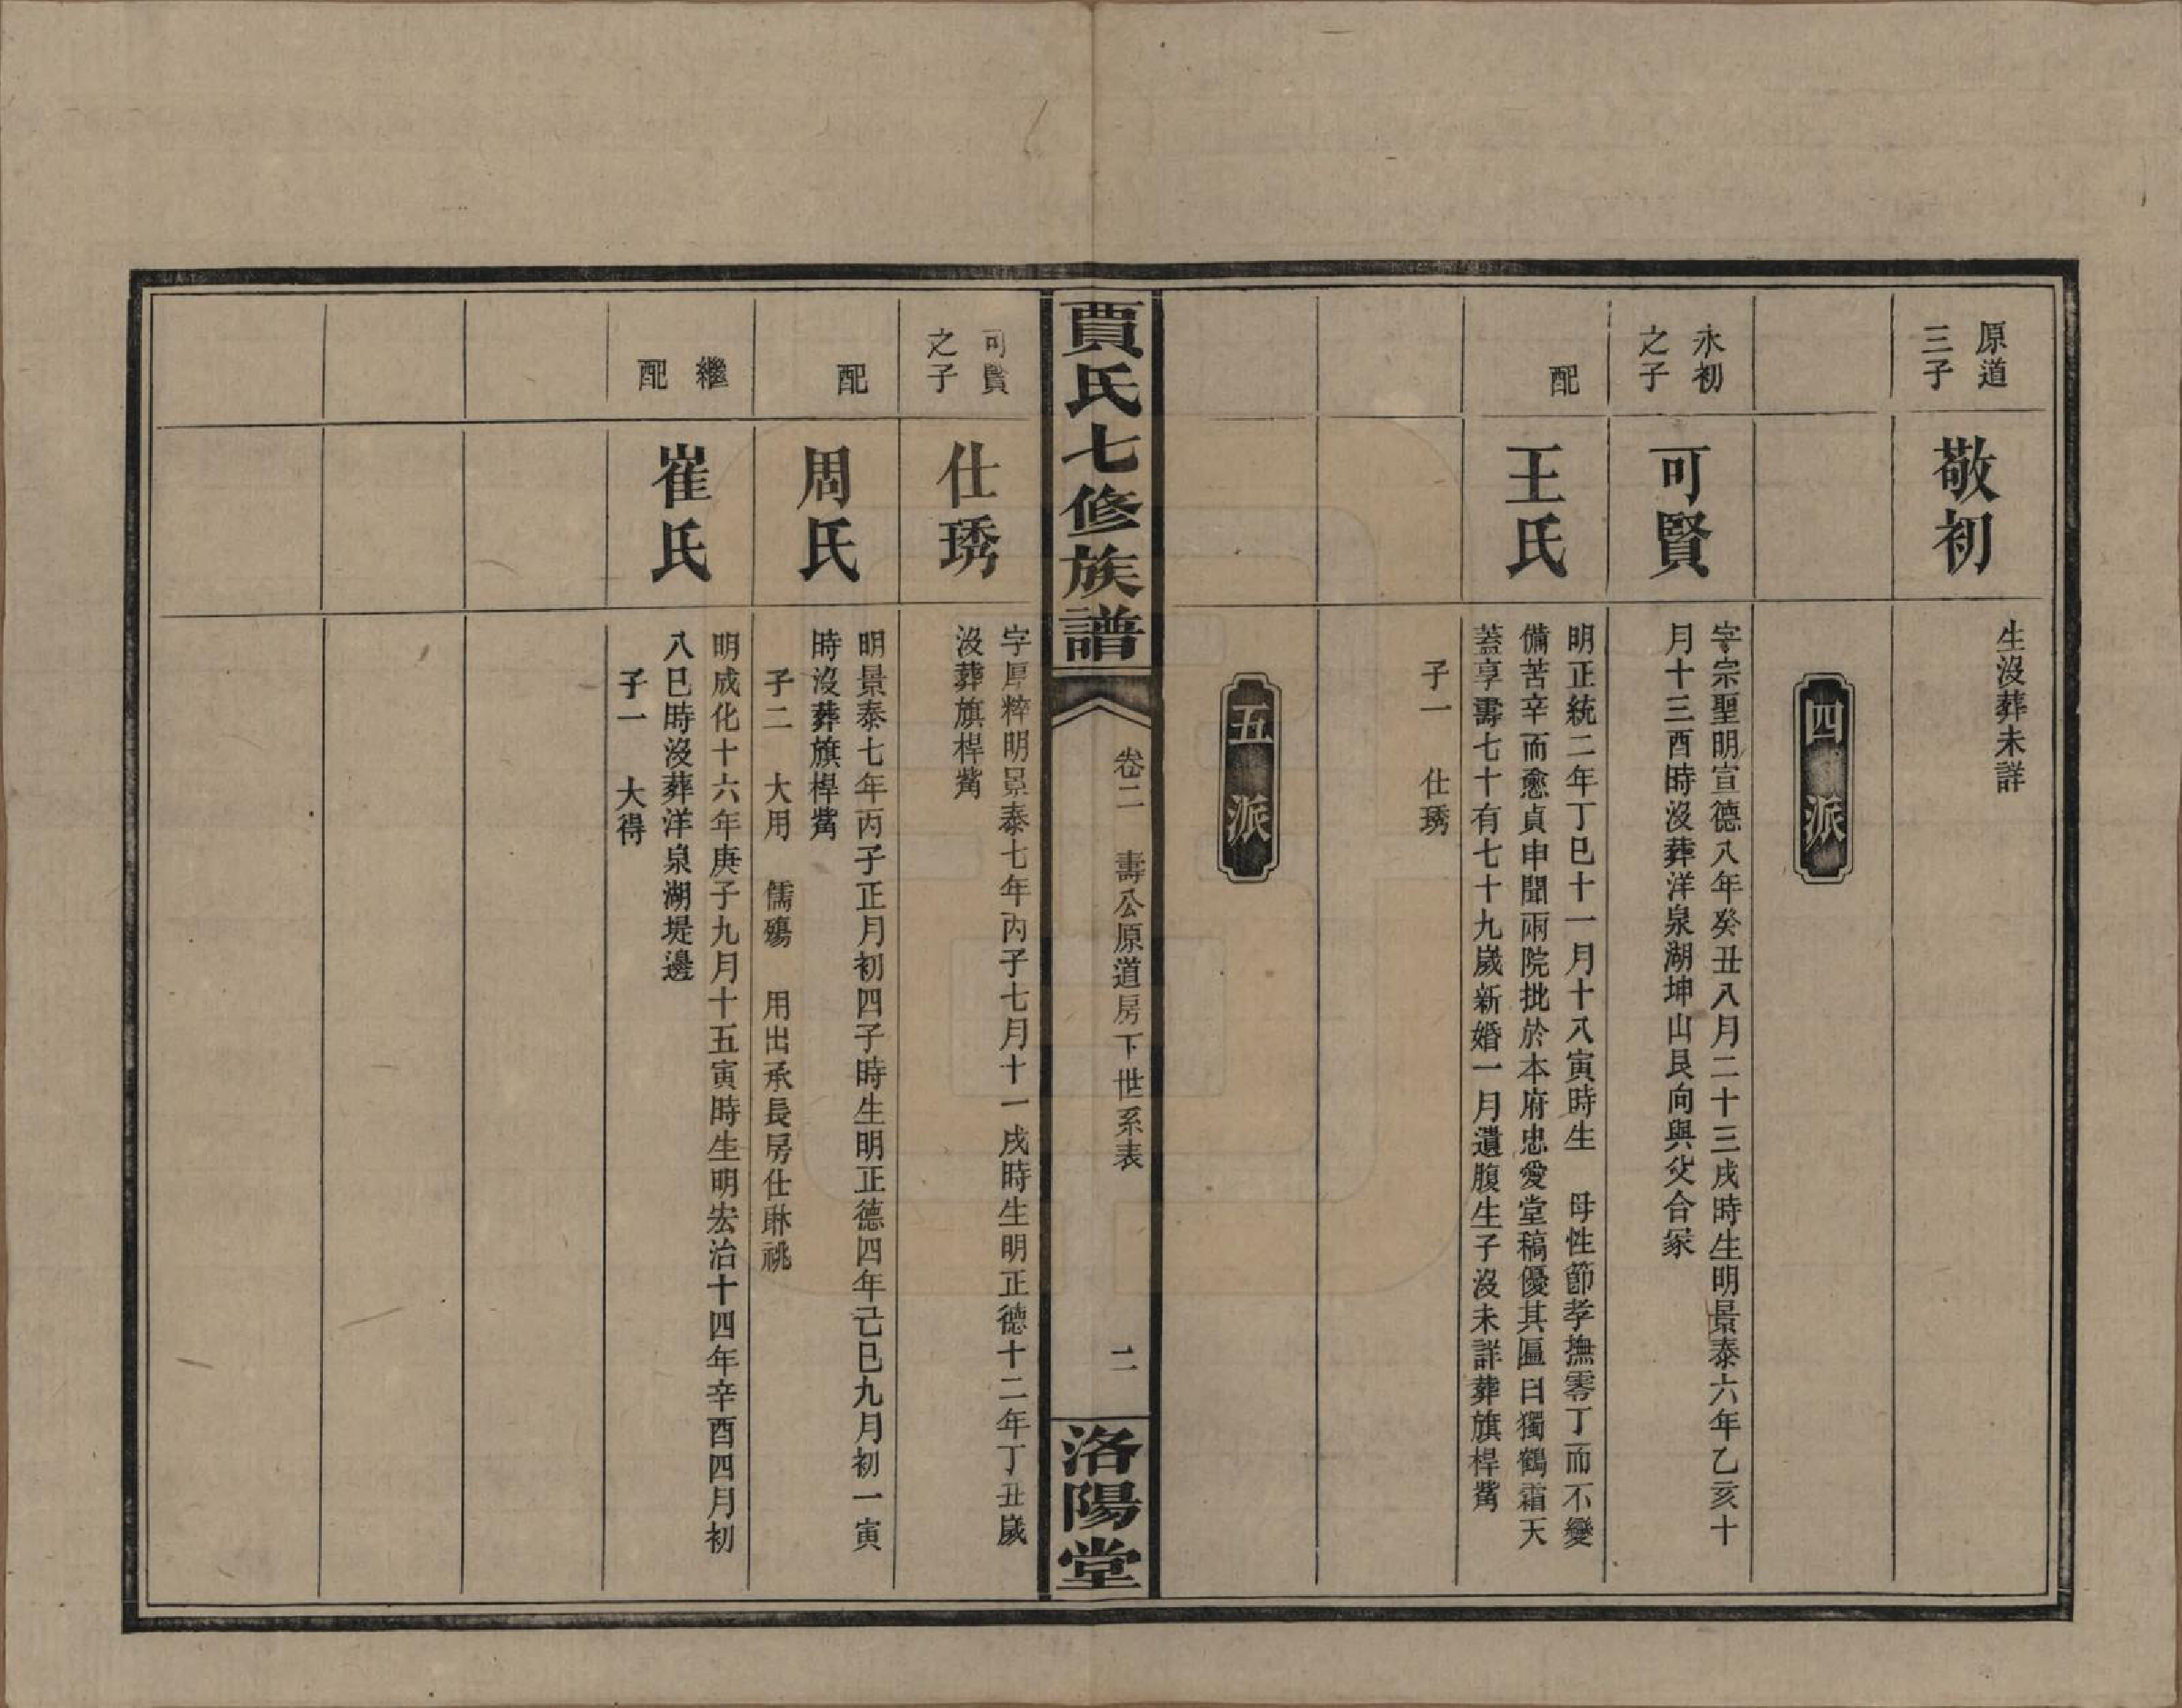 原道
三子
敬初
生沒葬未詳
四派
永初
之子
可賢
字宗聖明宣德八年癸丑八月二十三戌時生明景泰六年乙亥十
月十三酉時沒葬洋泉湖坤山艮向與父合冢
配
王氏
明正統二年丁巳十一月十八寅時生　母性節孝撫零丁而不變
備苦辛而愈貞申聞兩院批於本府忠愛堂稿優其匾曰獨鶴霜天
蓋享壽七十有七十九歲新婚一月遺腹生子沒未詳葬旗桿觜
子一　仕琇
五派
賈氏七修族譜
卷二　壽公原道房下世系表
二
洛陽堂
可賢
之子
仕琇
字厚粹明景泰七年丙子七月十一戌時生明正德十二年丁丑歲
沒葬旗桿觜
配
周氏
明景泰七年丙子正月初四子時生明正德四年己巳九月初一寅
時沒葬旗桿觜
子二　大用　儒殤　用出承長房仕琳祧
繼
配
崔氏
明成化十六年庚子九月十五寅時生明宏治十四年辛酉四月初
八巳時沒葬洋泉湖堤邊
子一　大得